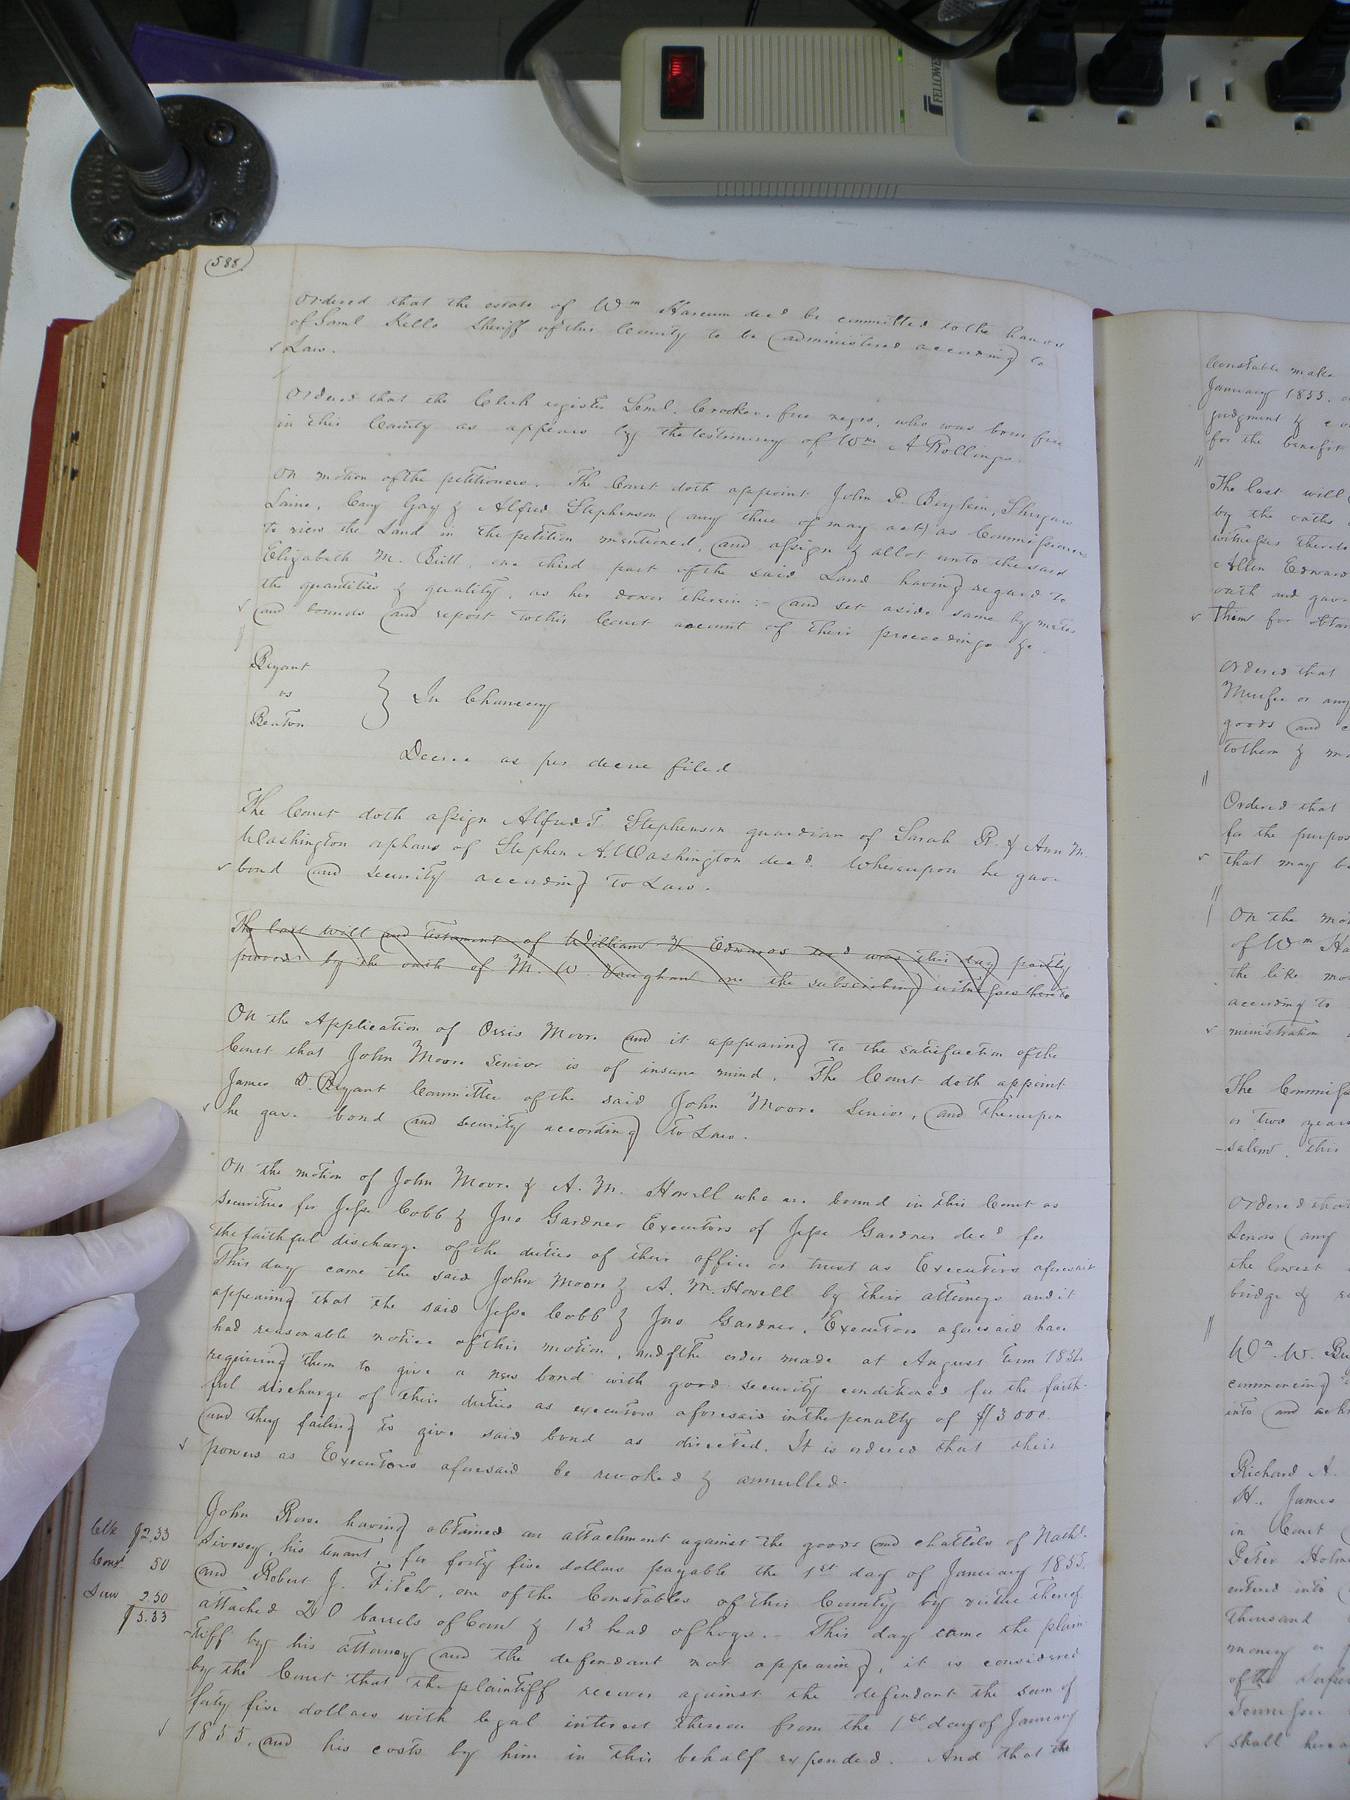 FELLOWES
588
Ordered that the estate of Wm Harcum decd be committed to the hands
of Saml Kello Sheriff of this County to be administered according to
Law.
Ordered that the Clerk register Saml. Crocker, free negro, who was born free
in this County as appears by the testimony of Wm A Rollings.
On motion of the petitioners. The Court doth appoint John P. Boykin,
Laine, Cary Gay & Alfred Stephenson (any three of may act) as Commissioners
to view the Land in the petition mentioned, and assign & allot unto the said
Elizabeth M. Britt, one third part of the said Land having regard to
the quantities & quality, as her dower therein :- and set aside same by metes
and bounds and report to this Court account of their proceedings &c.
Bryant
vs
Benton
In Chancery
Decree as per decree filed
The Court doth assign Alfred T Stephenson guardian of Sarah R. & Ann M.
Washington orphans of Stephen A. Washington decd. Whereupon he gave
bond and security according to Law.
The last will and testament of William H Edwards decd was this day partly
proved by the oath of M. W. Vaughan one the subscribing witnesses thereto
On the Application of Orris Moore and it appearing to the satisfaction of the
Court that John Moore Senior is of insane mind. The Court doth appoint
James D. Bryant Committee of the said John Moore Senior, and thereupon
he gave bond and security according to Law.
On the motion of John Moore & A. M. Howell who are bound in this Court as
securities for Jesse Cobb & Jno Gardner Executors of Jesse Gardner decd for
the faithful discharge of the duties of their office or trust as Executors aforesaid
This day came the said John Moore & A. M. Howell by their attorneys and it
appearing that the said Jesse Cobb & Jno Gardner, Executors aforesaid have
had reasonable notice of this motion, and of the order made at August term
requiring them to give a new bond with good security conditioned for the faith-
ful discharge of their duties as executors aforesaid in the penalty of $3000
and they failing to give said bond as directed. It is ordered that their
powers as Executors aforesaid be revoked & annulled.
Clk $2.33
Const 50
2.50
$5.33
John Rowe having obtained an attachment against the goods and chattels of Nathl.
Livesay, his tenant, for forty five dollars payable the 1st day of January 1855.
and Robert J. Fitch, one of the Constables of this County by virtue thereof
attached 20 barrels of Corn & 13 head of hogs. - This day came the plain-
tiff by his attorney and the defendant not appearing, it is considered
by the Court that the plaintiff recover against the defendant the sum of
forty five dollars with legal interest thereon from the 1st day of January
1855, and his costs by him in this behalf expended. And that the
Constable make
January 1855.
judgment &
for the benefit
The last will
by the oaths
witnesses thereto
Allen Edward
oath and gave
them for obtain
Ordered that
or any
goods and
to them &
Ordered that
for the purpos
that may be
On the mot
of Wm Ha
the like mo
according to
ministration
The Commiss
or two years
salem. this
Ordered that
(any
the lowest
bridge &
Wm. W. Bu
commencing
into and
Richard A.
H. James
in Court
Peter Holm
entered into
thousand
money
of the
shall